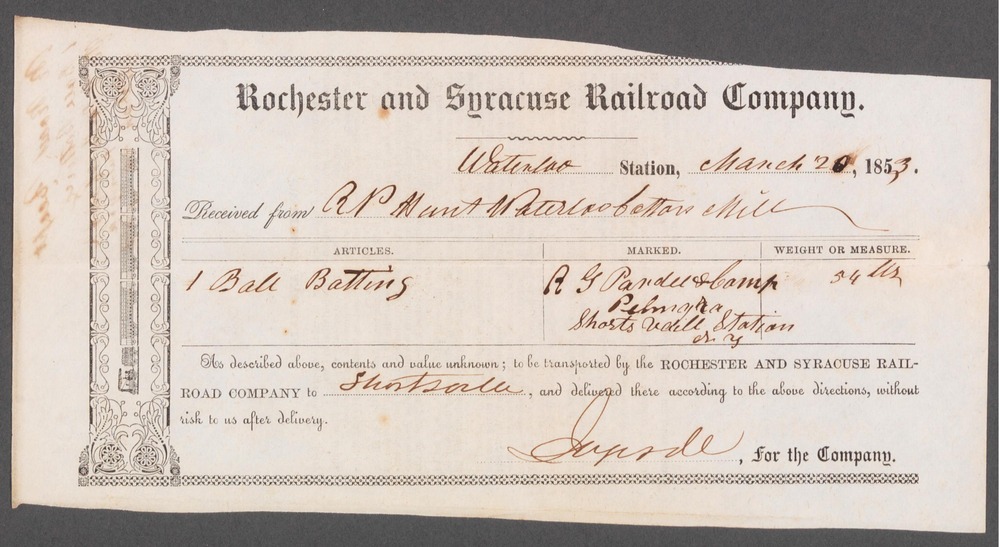 Rochester and Syracuse Railroad Company.
Waterloo Station, March 20, 1853.
Received from R P Hunt Waterloo Cotton Mill
ARTICLES. MARKED. WEIGHT OR MEASURE.
1 Ball Batting R G Pardee & Camp 54 lbs
Shorts Station
N Y
As described above, contents and value unknown; to be transported by the ROCHESTER AND SYRACUSE RAIL-
ROAD COMPANY to Shortsville, and delivered there according to the above directions, without
risk to us after delivery.
, For the Company.